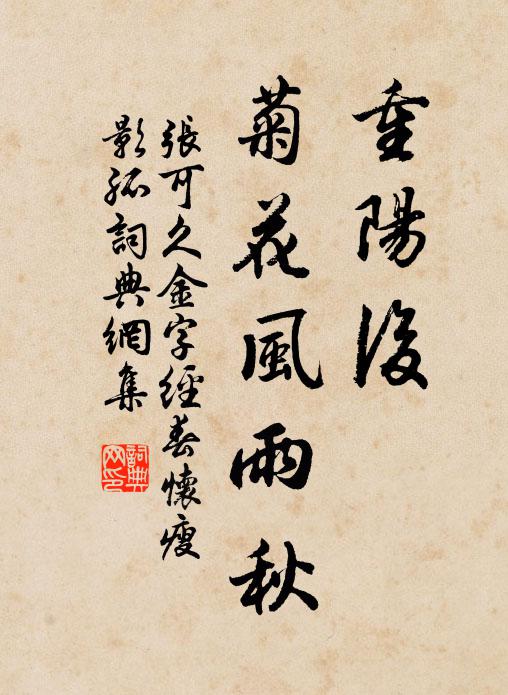 重陽後
菊花風雨秋
張可久金字經春懷瘦
影孤詞典網集
詞典
网印